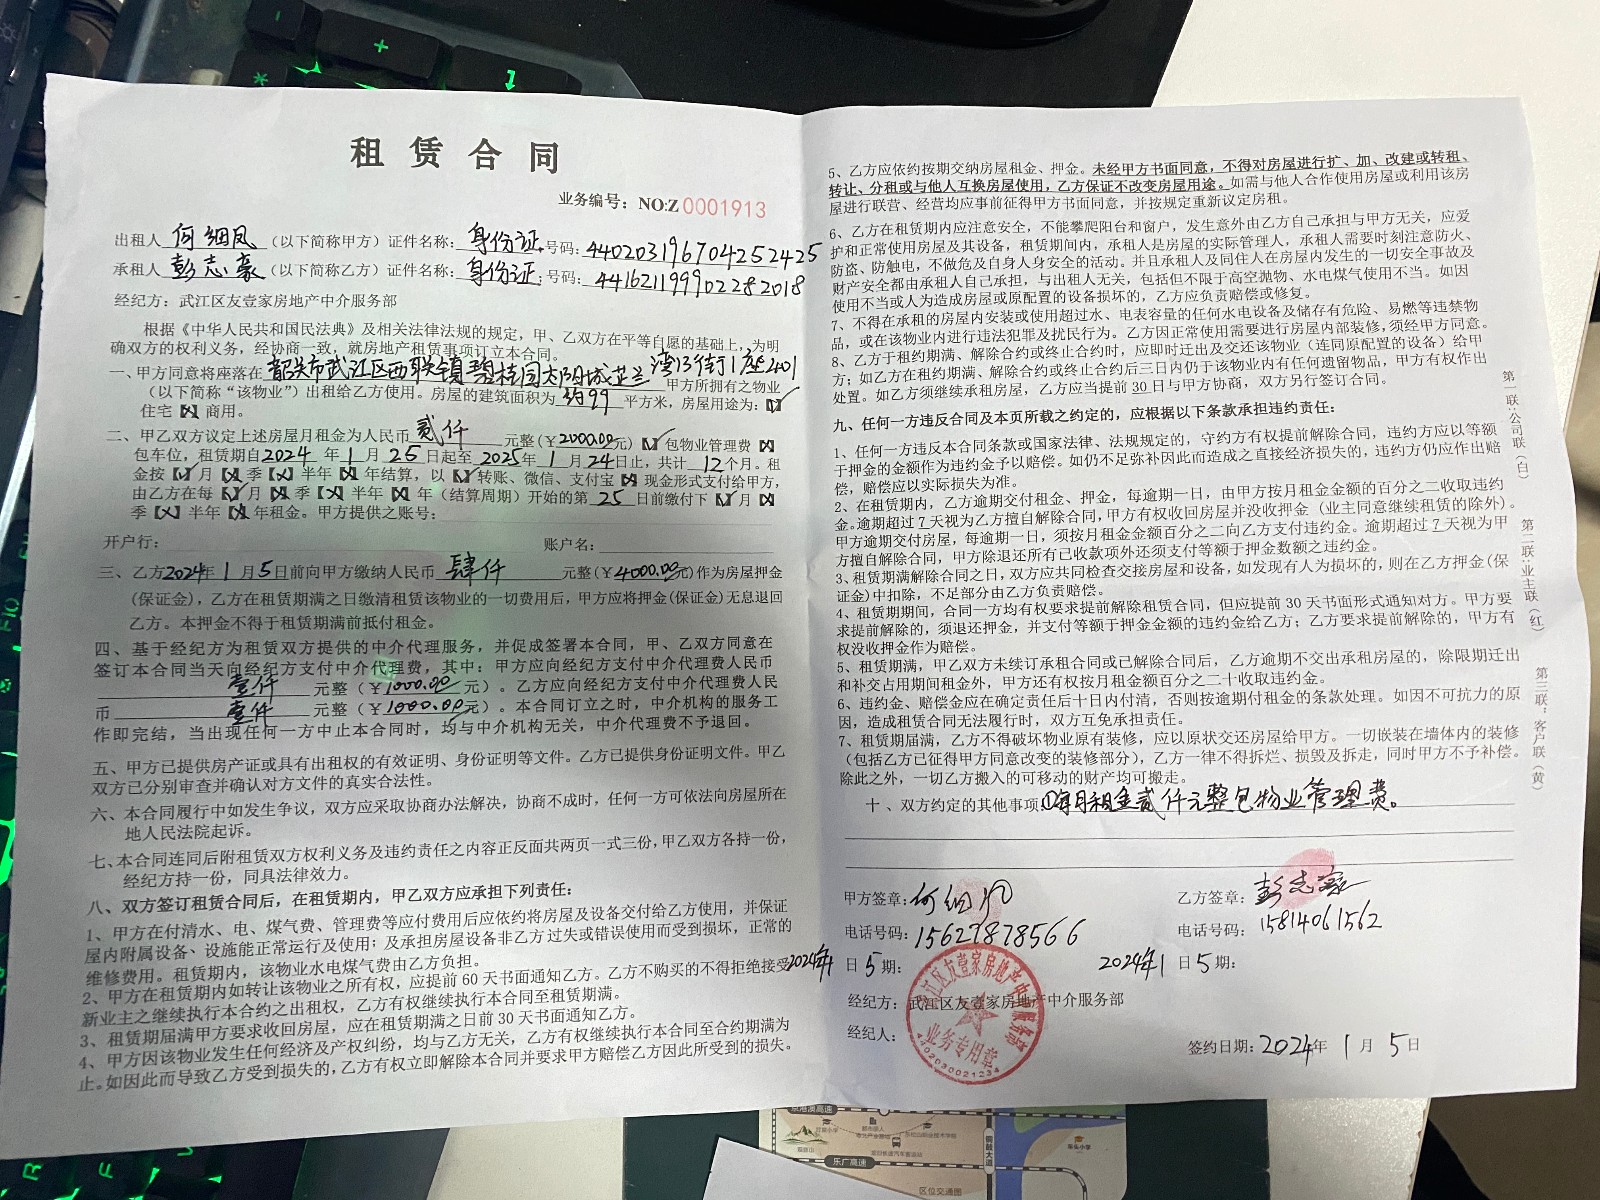 租赁合同
业务编号：NO:Z 0001913
出租人 何细凤 （以下简称甲方）证件名称：身份证 号码：440203196704252425
承租人 彭志豪 （以下简称乙方）证件名称：身份证 号码：441621199902282018
经纪方：武江区友壹家房地产中介服务部
根据《中华人民共和国民法典》及相关法律法规的规定，甲、乙双方在平等自愿的基础上，为明
确双方的权利义务，经协商一致，就房地产租赁事项订立本合同。
一、甲方同意将座落在 韶关市武江区西联镇碧桂园太阳城芷兰湾13街1座2401 甲方所拥有之物业
（以下简称“该物业”）出租给乙方使用。房屋的建筑面积为 约99 平方米，房屋用途为：【✓】
住宅【×】商用。
二、甲乙双方议定上述房屋月租金为人民币 贰仟 元整（¥2000.00元）【✓】包物业管理费【×】
包车位，租赁期自2024年1月25日起至2025年1月24日止，共计12个月。租
金按【✓】月【×】季【×】半年【×】年结算，以【✓】转账、微信、支付宝【×】现金形式支付给甲方，
由乙方在每【✓】月【×】季【×】半年【×】年（结算周期）开始的第 25 日前缴付下【✓】月【×】
季【×】半年【×】年租金。甲方提供之账号：
开户行： 账户名：
三、乙方2024年1月5日前向甲方缴纳人民币 肆仟 元整（¥4000.00元）作为房屋押金
（保证金），乙方在租赁期满之日缴清租赁该物业的一切费用后，甲方应将押金（保证金）无息退回
乙方。本押金不得于租赁期满前抵付租金。
四、基于经纪方为租赁双方提供的中介代理服务，并促成签署本合同，甲、乙双方同意在
签订本合同当天向经纪方支付中介代理费，其中：甲方应向经纪方支付中介代理费人民币
壹仟 元整（¥1000.00元）。乙方应向经纪方支付中介代理费人民
币 壹仟 元整（¥1000.00元）。本合同订立之时，中介机构的服务工
作即完结，当出现任何一方中止本合同时，均与中介机构无关，中介代理费不予退回。
五、甲方已提供房产证或具有出租权的有效证明、身份证明等文件。乙方已提供身份证明文件。甲乙
双方已分别审查并确认对方文件的真实合法性。
六、本合同履行中如发生争议，双方应采取协商办法解决，协商不成时，任何一方可依法向房屋所在
地人民法院起诉。
七、本合同连同后附租赁双方权利义务及违约责任之内容正反面共两页一式三份，甲乙双方各持一份，
经纪方持一份，同具法律效力。
八、双方签订租赁合同后，在租赁期内，甲乙双方应承担下列责任：
1、甲方在付清水、电、煤气费、管理费等应付费用后应依约将房屋及设备交付给乙方使用，并保证
屋内附属设备、设施能正常运行及使用；及承担房屋设备非乙方过失或错误使用而受到损坏，正常的
维修费用。租赁期内，该物业水电煤气费由乙方负担。
2、甲方在租赁期内如转让该物业之所有权，应提前60天书面通知乙方。乙方不购买的不得拒绝接受
新业主之继续执行本合约之出租权，乙方有权继续执行本合同至租赁期满。
3、租赁期届满甲方要求收回房屋，应在租赁期满之日前30天书面通知乙方。
4、甲方因该物业发生任何经济及产权纠纷，均与乙方无关，乙方有权继续执行本合同至合约期满为
止。如因此而导致乙方受到损失的，乙方有权立即解除本合同并要求甲方赔偿乙方因此所受到的损失。
5、乙方应依约按期交纳房屋租金、押金。未经甲方书面同意，不得对房屋进行扩、加、改建或转租、
转让、分租或与他人互换房屋使用，乙方保证不改变房屋用途。如需与他人合作使用房屋或利用该房
屋进行联营、经营均应事前征得甲方书面同意，并按规定重新议定房租。
6、乙方在租赁期内应注意安全，不能攀爬阳台和窗户，发生意外由乙方自己承担与甲方无关，应爱
护和正常使用房屋及其设备，租赁期间内，承租人是房屋的实际管理人，承租人需要时刻注意防火、
防盗、防触电，不做危及自身人身安全的活动。并且承租人及同住人在房屋内发生的一切安全事故及
财产安全都由承租人自己承担，与出租人无关，包括但不限于高空抛物、水电煤气使用不当。如因
使用不当或人为造成房屋或原配置的设备损坏的，乙方应负责赔偿或修复。
7、不得在承租的房屋内安装或使用超过水、电表容量的任何水电设备及储存有危险、易燃等违禁物
品，或在该物业内进行违法犯罪及扰民行为。乙方因正常使用需要进行房屋内部装修，须经甲方同意。
8、乙方于租约期满、解除合约或终止合约时，应即时迁出及交还该物业（连同原配置的设备）给甲
方；如乙方在租约期满、解除合约或终止合约后三日内仍于该物业内有任何遗留物品，甲方有权作出
处置。如乙方须继续承租房屋，乙方应当提前30日与甲方协商，双方另行签订合同。
九、任何一方违反合同及本页所载之约定的，应根据以下条款承担违约责任：
1、任何一方违反本合同条款或国家法律、法规规定的，守约方有权提前解除合同，违约方应以等额
于押金的金额作为违约金予以赔偿。如仍不足弥补因此而造成之直接经济损失的，违约方仍应作出赔
偿，赔偿应以实际损失为准。
2、在租赁期内，乙方逾期交付租金、押金，每逾期一日，由甲方按月租金金额的百分之二收取违约
金。逾期超过7天视为乙方擅自解除合同，甲方有权收回房屋并没收押金（业主同意继续租赁的除外）。
甲方逾期交付房屋，每逾期一日，须按月租金金额百分之二向乙方支付违约金。逾期超过7天视为甲
方擅自解除合同，甲方除退还所有已收款项外还须支付等额于押金数额之违约金。
3、租赁期满解除合同之日，双方应共同检查交接房屋和设备，如发现有人为损坏的，则在乙方押金（保
证金）中扣除，不足部分由乙方负责赔偿。
4、租赁期期间，合同一方均有权要求提前解除租赁合同，但应提前30天书面形式通知对方。甲方要
求提前解除的，须退还押金，并支付等额于押金金额的违约金给乙方；乙方要求提前解除的，甲方有
权没收押金作为赔偿。
5、租赁期满，甲乙双方未续订承租合同或已解除合同后，乙方逾期不交出承租房屋的，除限期迁出
和补交占用期间租金外，甲方还有权按月租金额百分之二十收取违约金。
6、违约金、赔偿金应在确定责任后十日内付清，否则按逾期付租金的条款处理。如因不可抗力的原
因，造成租赁合同无法履行时，双方互免承担责任。
7、租赁期届满，乙方不得破坏物业原有装修，应以原状交还房屋给甲方。一切嵌装在墙体内的装修
（包括乙方已征得甲方同意改变的装修部分），乙方一律不得拆烂、损毁及拆走，同时甲方不予补偿。
除此之外，一切乙方搬入的可移动的财产均可搬走。
十、双方约定的其他事项：①每月租金贰仟元整包物业管理费。
甲方签章：何细凤 乙方签章：彭志豪
电话号码：15627878566 电话号码：15814061562
2024年1日5期： 2024年1日5期：
经纪方：武江区友壹家房地产中介服务部
经纪人：
签约日期：2024年1月5日
武江区友壹家房地产中介服务部
业务专用章
4402030021234
第一联：公司联（白）
第二联：业主联（红）
第三联：客户联（黄）
京港澳高速
乐广高速
区位交通图